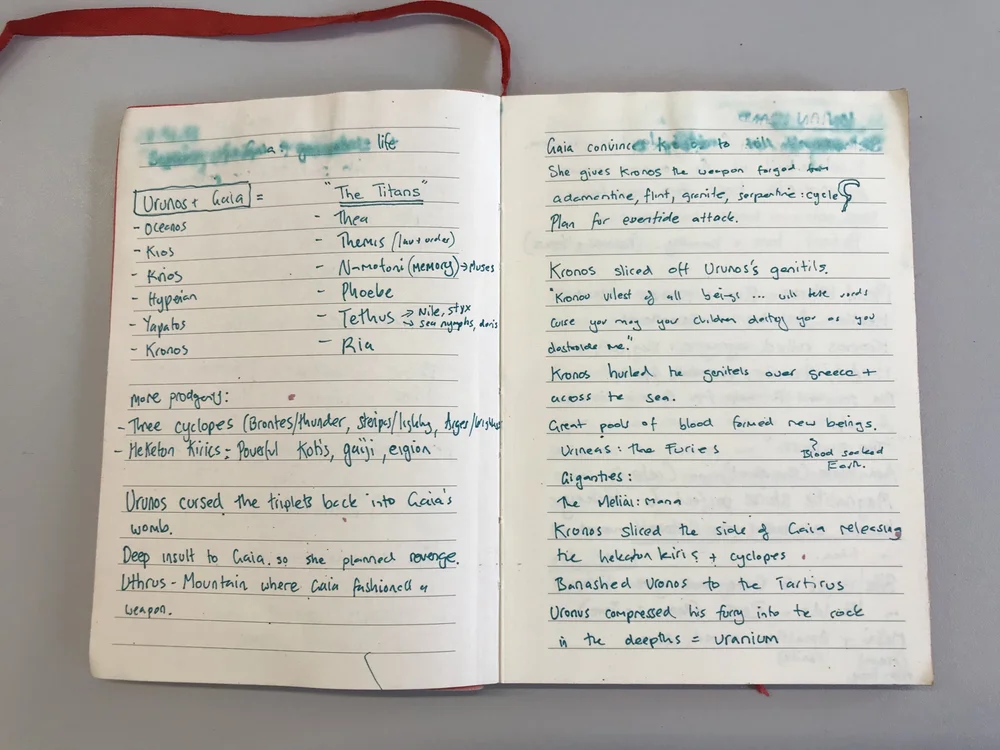 Gaia: life
Urunos + Gaia =
- Oceanos
- Kios
- Krios
- Hyperian
- Yapatos
- Kronos
"The Titans"
- Thea
- Themis (law + order)
- N-motoni (memory) → Muses
- Phoebe
- Tethus → Nile, styx
→ sea nymphs, doris
- Ria
more prodgeny:
- Three cyclopes (Brontes/thunder, Steipes/lightng, Arges/
- Heketon Kirics: Powerful Kotis, gaiji, eigion
Urunos cursed the triplets back into Gaia's
womb.
Deep insult to Gaia. so she planned revenge.
Uthrus - Mountain where Gaia fashioned a
weapon.
Gaia convinces to
She gives Kronos the weapon forged from
adamentine, flint, granite, serpentine: cycle
Plan for eventide attack.
Kronos sliced off Urunos's genitils.
"Kronou vilest of all beings ... will these words
curse you may your children destroy you as you
destroide me."
Kronos hurled the genitels over greece +
across the sea.
Great pools of blood formed new beings.
Urineas: the Furies
Blood soaked
Earth.
Giganties:
The Meliai: mana
Kronos sliced the side of Gaia releasing
the hekaton kiris + cyclopes.
Banashed Uronos to the Tartirus
Uronus compressed his furry into the rock
in the deepths = uranium